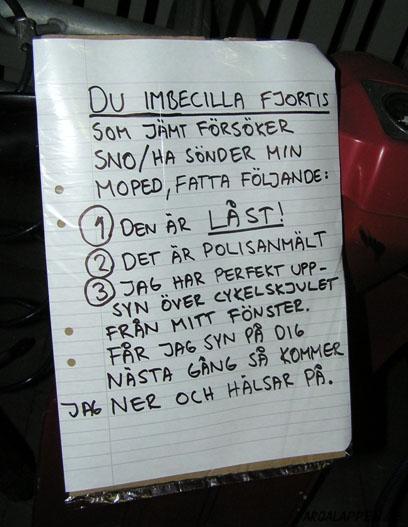 DU IMBECILLA FJORTIS
SOM JÄMT FÖRSÖKER
SNO/HA SÖNDER MIN
MOPED, FATTA FÖLJANDE:
1 DEN ÄR LÅST!
2 DET ÄR POLISANMÄLT
3 JAG HAR PERFEKT UPP-
SYN ÖVER CYKELSKJULET
FRÅN MITT FÖNSTER.
FÅR JAG SYN PÅ DIG
NÄSTA GÅNG SÅ KOMMER
JAG NER OCH HÄLSAR PÅ.